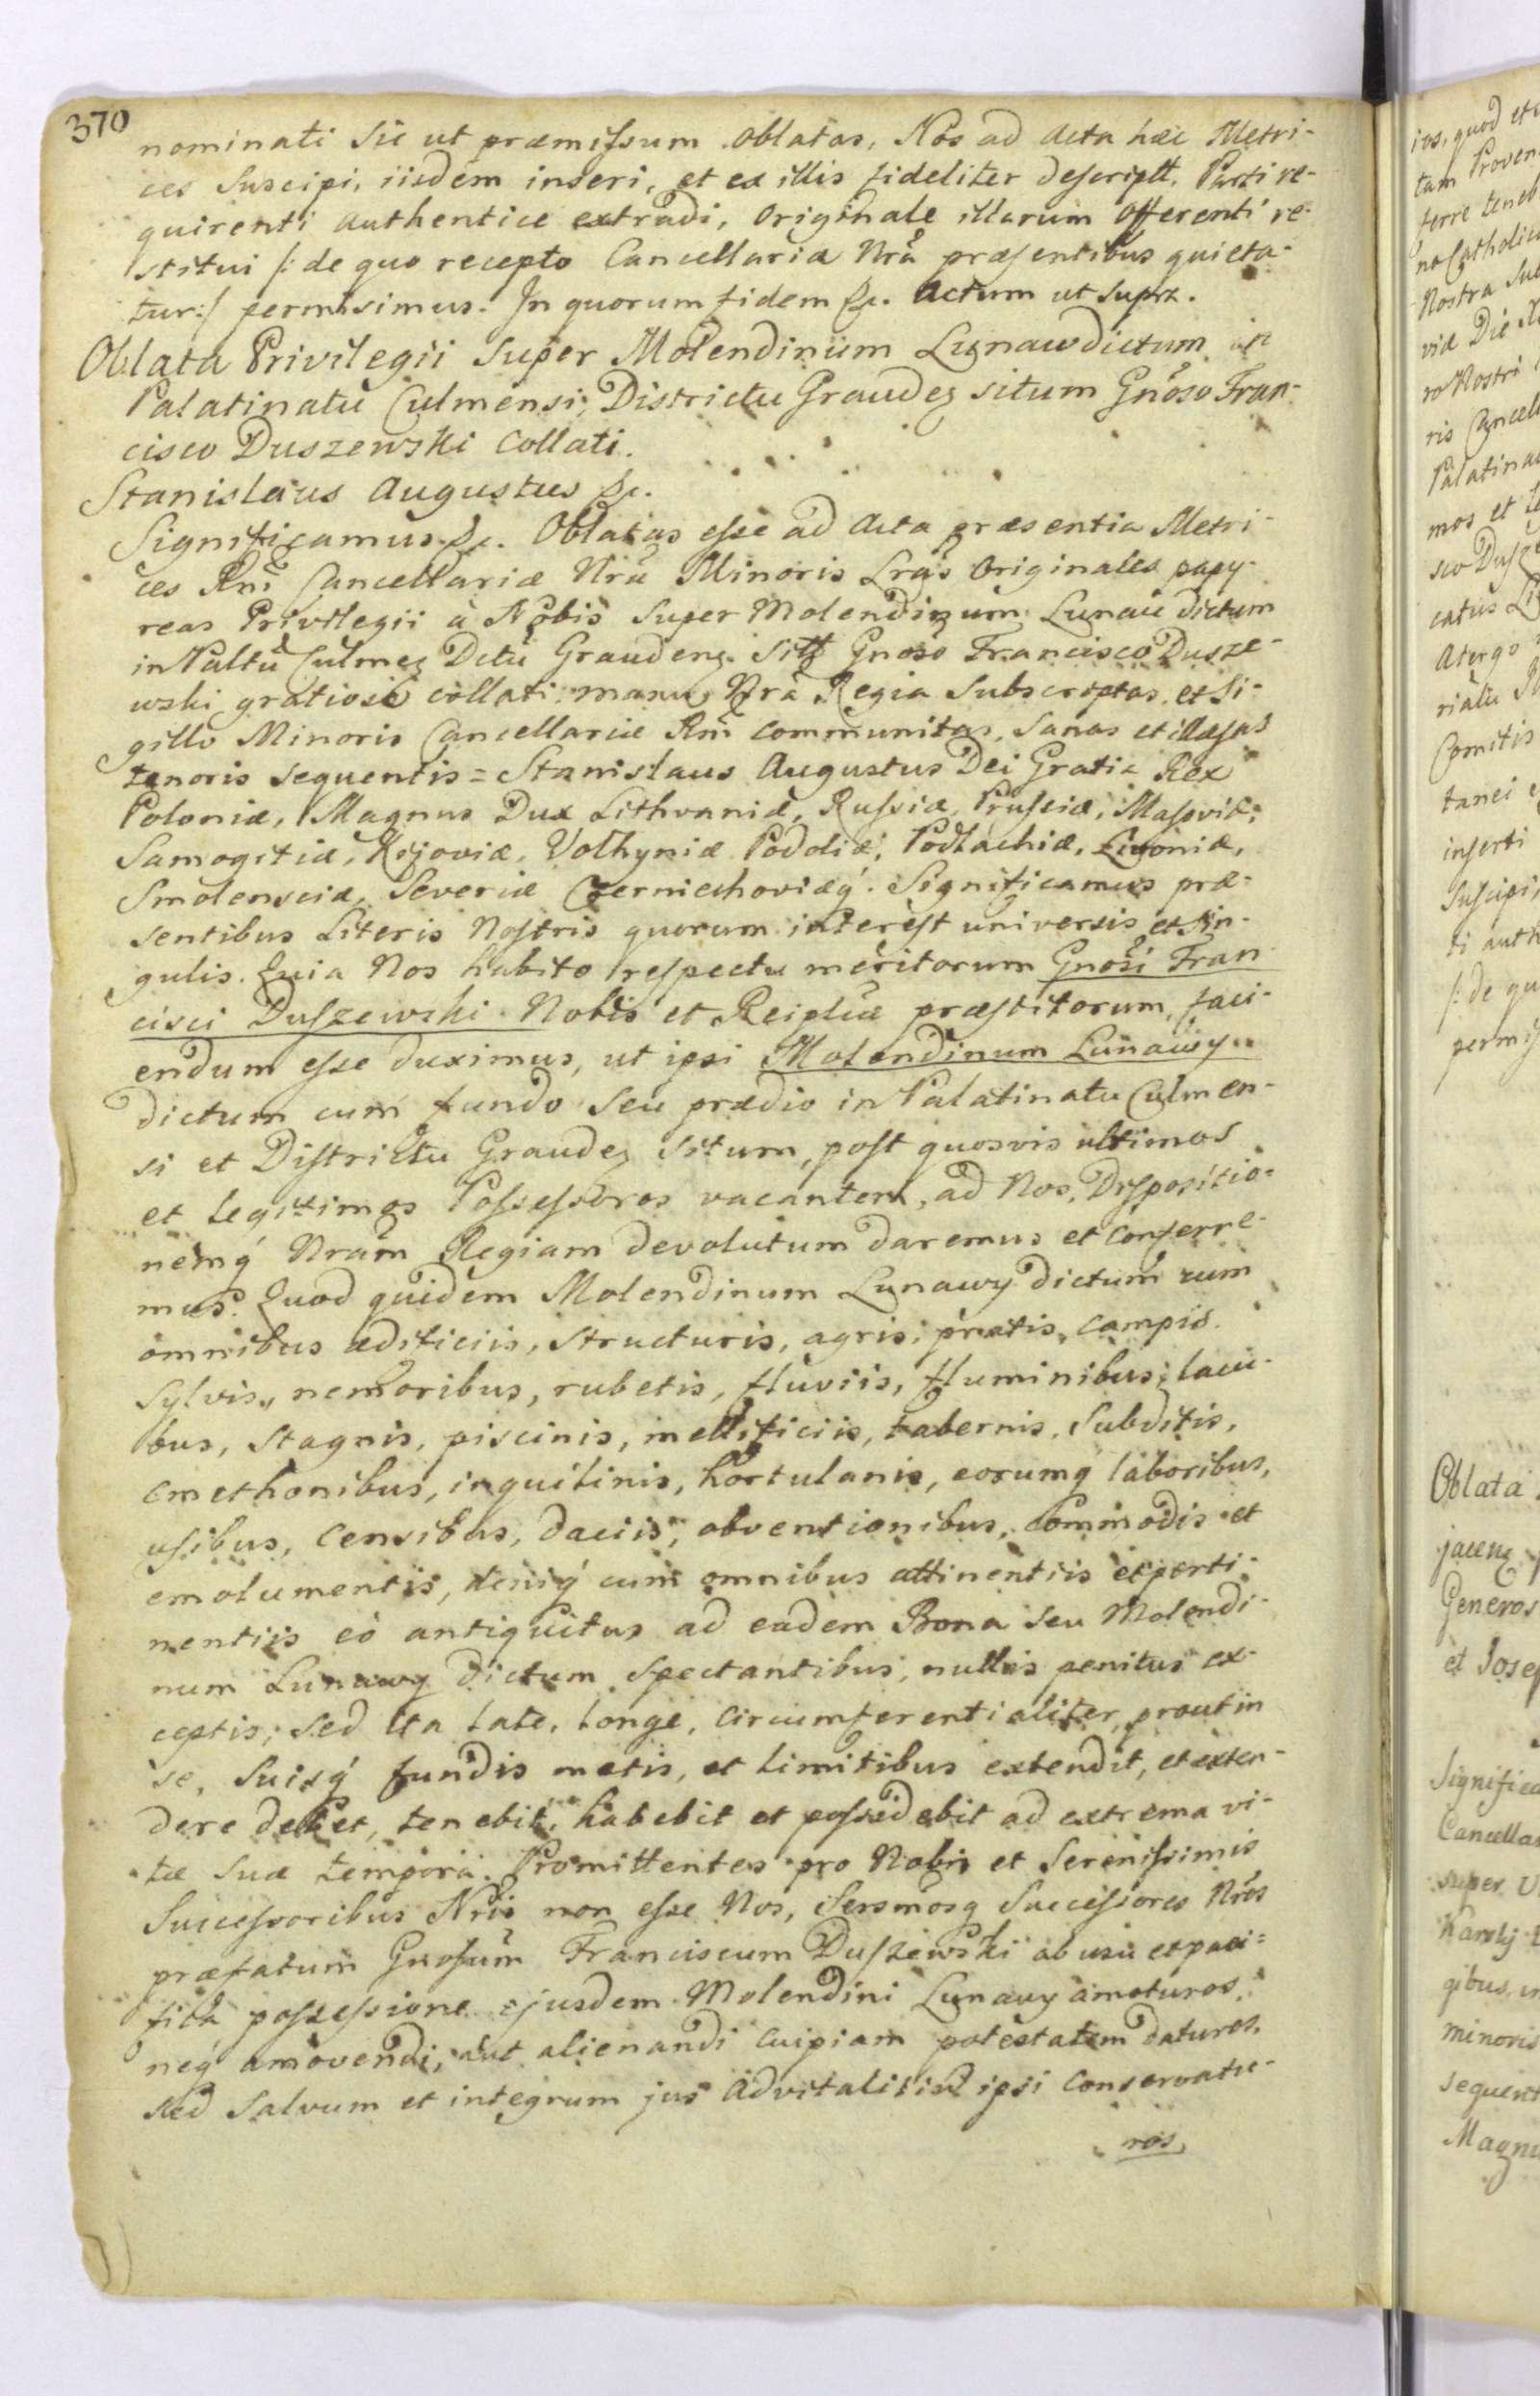 370
nominati sic ut præmissum oblatas, Nos ad Acta hæc Metri-
ces suscipi, iisdem inseri, et ex illis fideliter descriptt. Parti re-
quirenti authentice extradi, Originale illarum Offerenti re-
stitui /: de quo recepto Cancellaria Nrã præsentibus quieta-
tur :/ permisimus. In quorum fidem &c. Actum ut supra.
Oblata Privilegii super Molendinum Lunaw dictum in
Palatinatu Culmensi, Districtu Graudez situm Gnoso Fran-
cisco Duszewski Collati.
Stanislaus Augustus &c.
Significamus &c. Oblatas esse ad Acta præsentia Metri-
ces Rni Cancellariæ Nræ Minoris Lras Originales papy-
reas Privilegii à Nobis super Molendinum Lunaw dictum
in Paltu Culmez Dctu Graudenz. sitt Gnoso Francisco Dusze-
wski gratiose collati manu Nra Regia subscriptas, et Si-
gillo Minoris Cancellariæ Rni communitas, sanas et illæsas
tenoris sequentis = Stanislaus Augustus Dei Gratia Rex
Poloniæ, Magnus Dux Lithvaniæ, Russiæ, Prussiæ, Masoviæ,
Samogitiæ, Kijoviæ, Volhyniæ, Podoliæ, Podlachiæ, Livoniæ,
Smolensciæ, Severiæ Czerniechoviæq́. Significamus præ-
sentibus Literis Nostris quorum interest universis et sin-
gulis. Quia Nos habito respectu meritorum Gnosi Fran-
cisci Duszewski Nobis et Reiplicæ præstitorum, faci-
endum esse duximus, ut ipsi Molendinum Lunawy
dictum cum fundo seu prædio in Palatinatu Culmen-
si et Districtu Graudez situm, post quosvis ultimos
et legitimos Possessores vacantem, ad Nos, Dispositio-
nemq́ Nram Regiam devolutum daremus et conferre-
mus. Quod quidem Molendinum Lunawy dictum cum
omnibus ædificiis, structuris, agris, pratis, campis.
sylvis, nemoribus, rubetis, fluviis, fluminibus, lacu-
bus, stagnis, piscinis, mellificiis, tabernis, subditis,
cmethonibus, inquilinis, hortulanis, eorumq́ laboribus,
usibus, censibus, daciis, obventionibus, commodis et
emolumentis, deniq́ cum omnibus attinentiis et perti-
nentiis eò antiquitus ad eadem Bona seu Molendi-
num Lunawy dictum spectantibus, nullis penitus ex-
ceptis; sed ita late, longe, circumferentialiter, prout in
se, suisq́ fundis metis, et limitibus extendit, et exten-
dere debet, tenebit, habebit et possidebit ad extrema vi-
tæ suæ tempora. Promittentes pro Nobis et Serenissimis
Successoribus Nris non esse Nos, Sersmosq Successores Nros
præfatum Gnosum Franciscum Duszewski ab usu et paci-
fica possessione ejusdem Molendini Lunawy amoturos,
neq́ amovendi, aut alienandi cuipiam potestatem daturos,
sed salvum et integrum jus advitalitium ipsi conservatu-
ros,
ios, quod et
tam Proven
ferre teneb
na Catholic
Nostra
viæ Die
ro Nostri
ris Cancell
Palatina
mos et
sco Dusz
catus
Atergo
rialu
Comitis
tanei
inserti
suscipi,
ti auth
/: de qu
permis
Oblata
jacen
Generos
et Jose
Significa
Cancella
super
Karolj
gibus,
minoris
sequent
Magnu